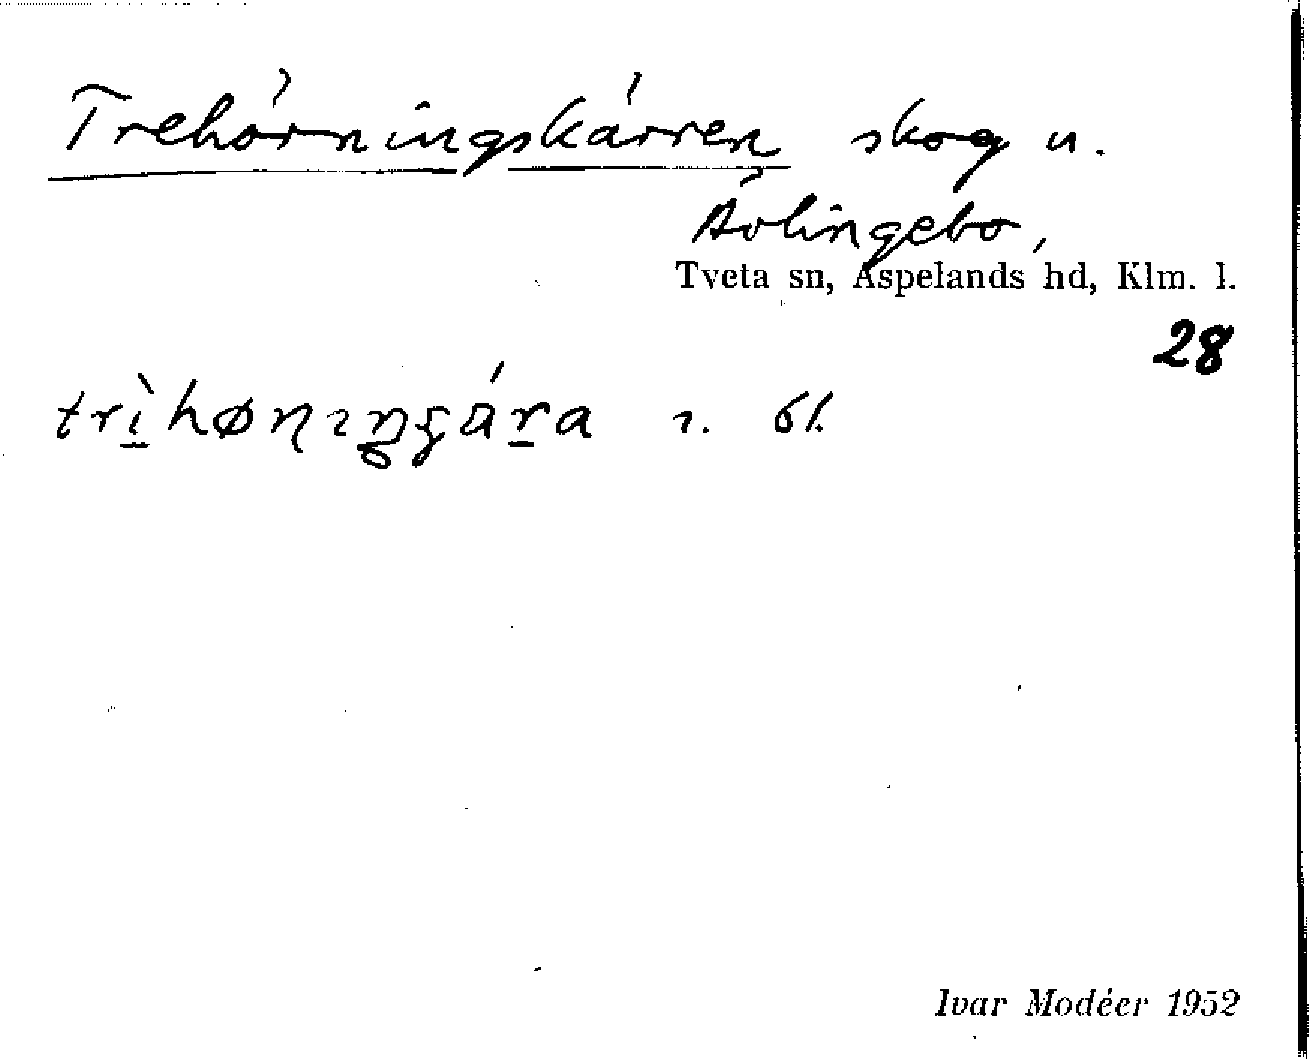 Trehörningskärren skog u.
Ävlingebo,
Tveta sn, Aspelands hd, Klm. l.
28
Ivar Modéer 1952